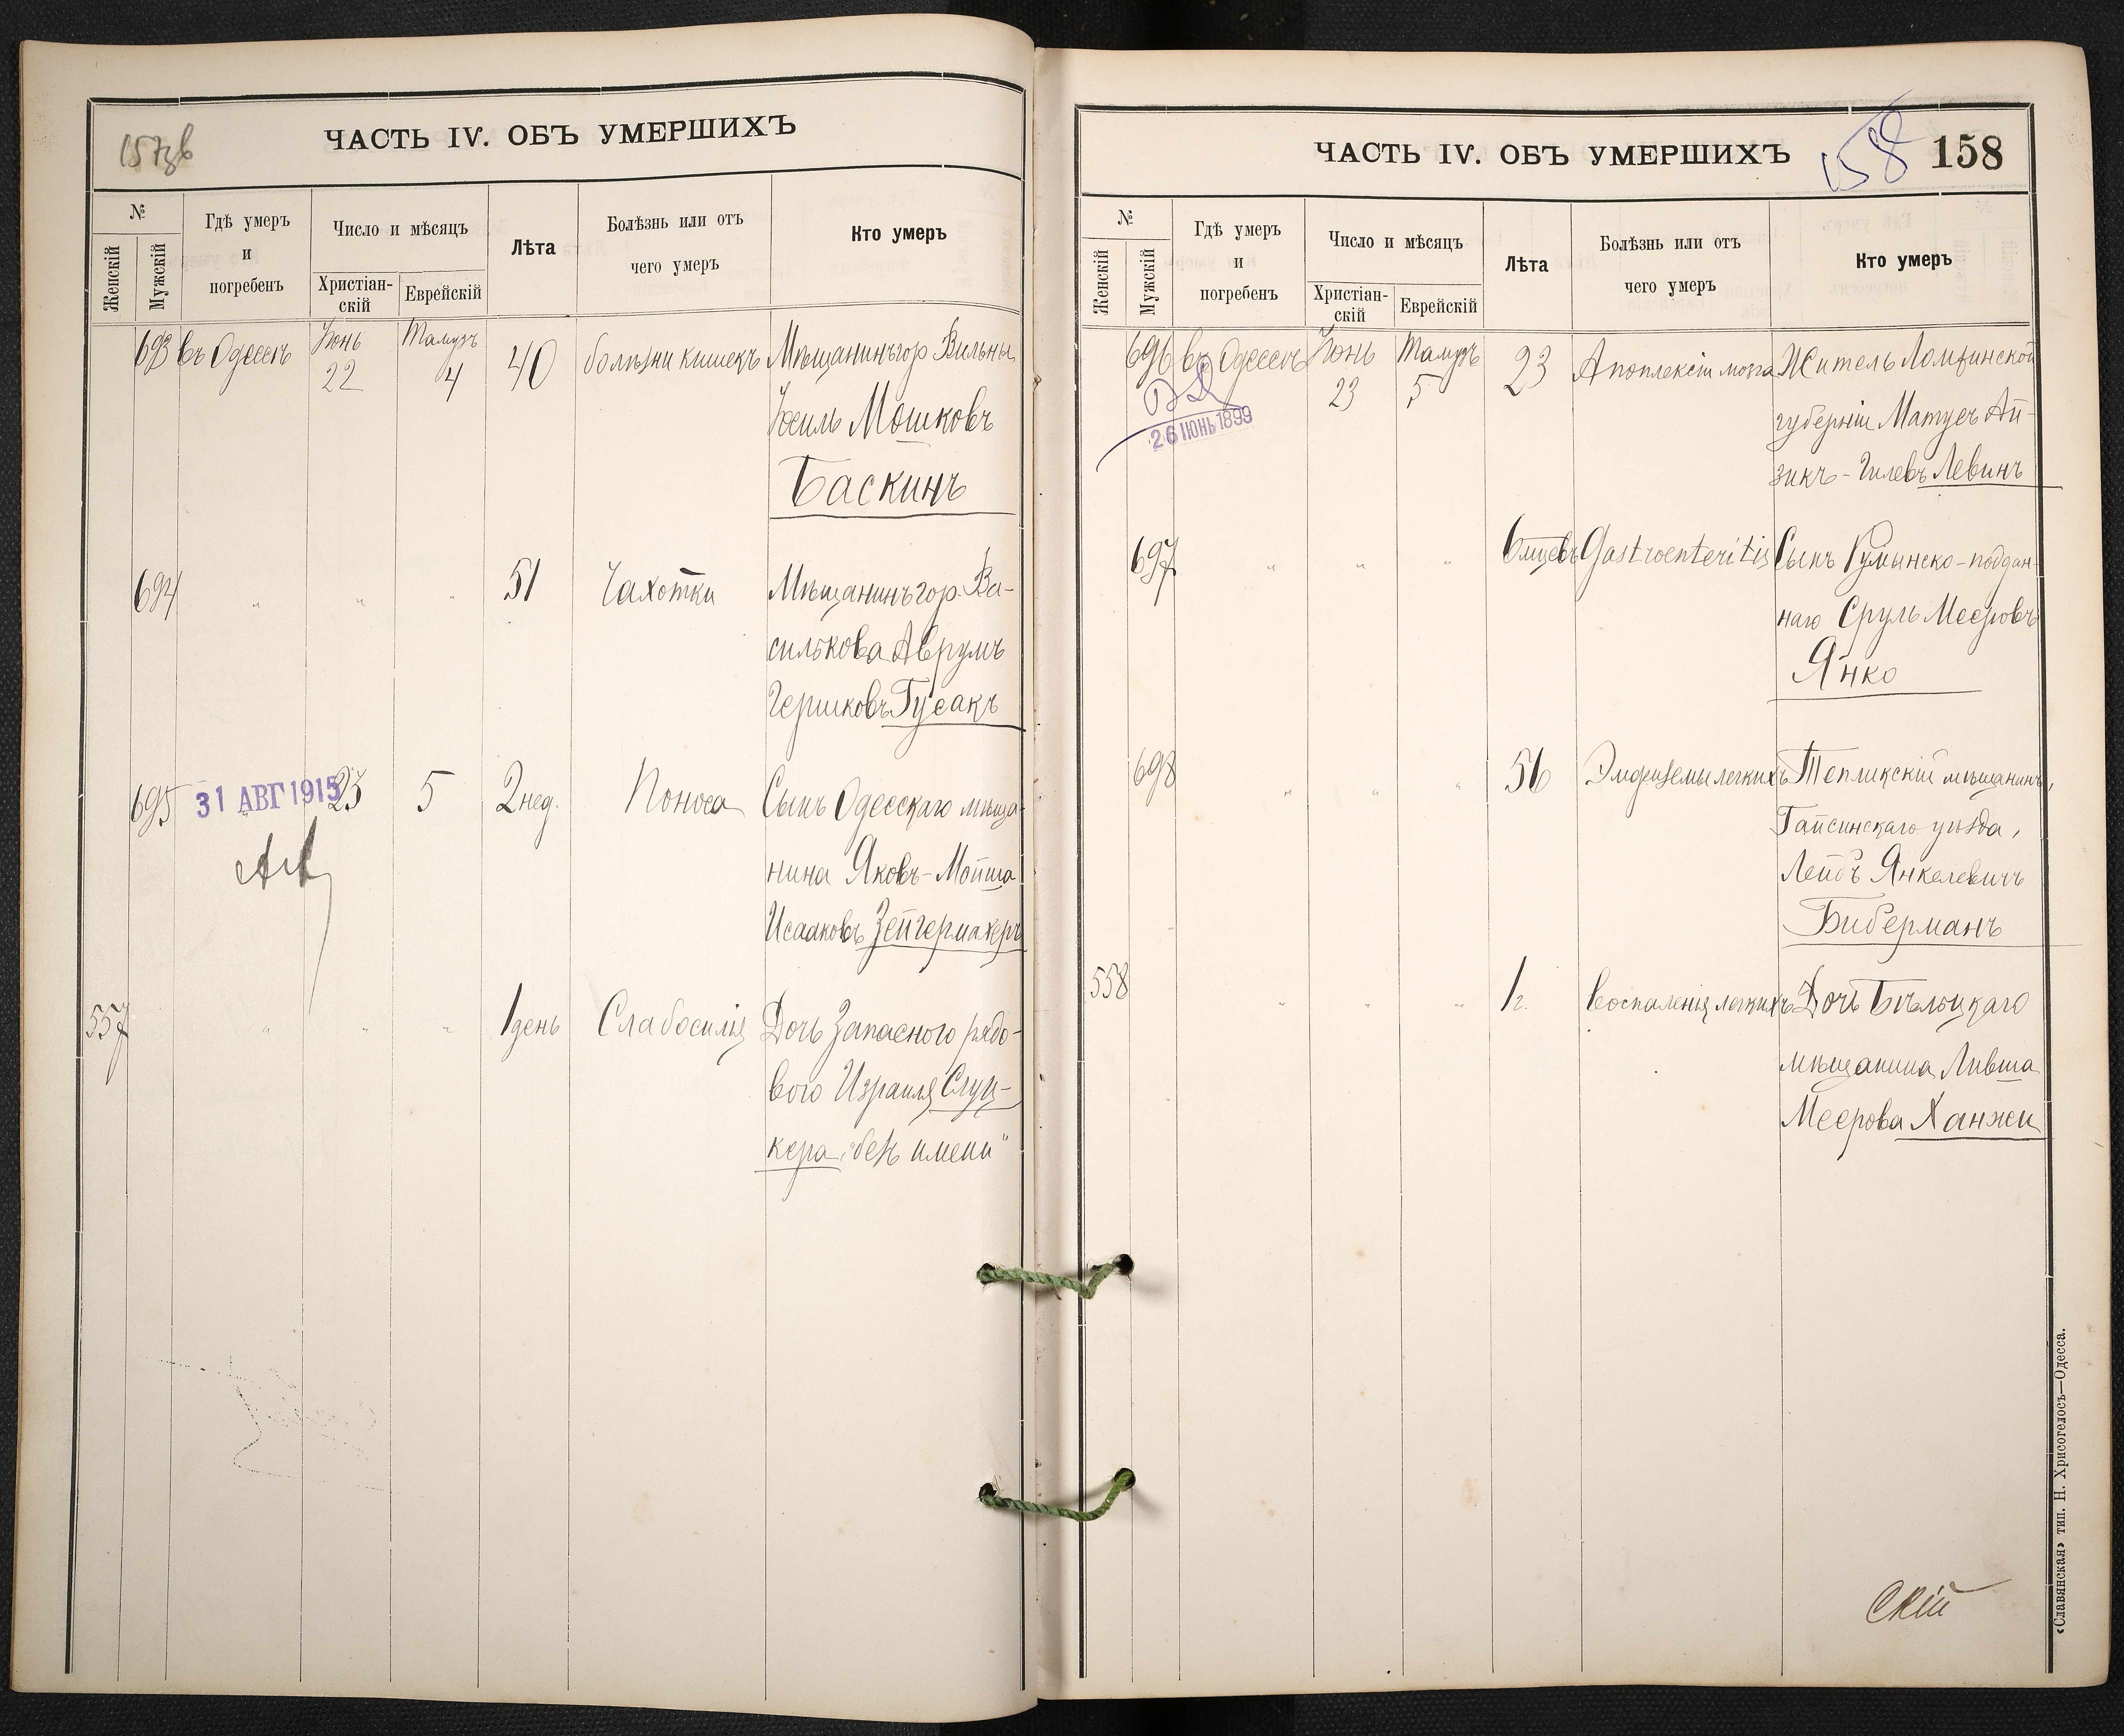 157зв
ЧАСТЬ IV. ОБЪ УМЕРШИХЪ
№
Женскій
Мужскій
Гдѣ умеръ
и
погребенъ
Число и мѣсяцъ
Христіан-
скій
Еврейскій
Лѣта
Болѣзнь или отъ
чего умеръ
Кто умеръ
693 въ Одессѣ Іюнь 22 Тамузъ 4 40 болѣзни кишекъ Мѣщанинъ гор. Вильны
Іосиль Мошковъ
Баскинъ
694 " " " 51 Чахотки Мѣщанинъ гор. Ва-
силькова Аврумъ
Гершковъ Гусакъ
695 31 АВГ 1915 23 5 2 нед. Поноса Сынъ Одесскаго мѣща-
нина Яковъ-Мойша
Исааковъ Зейгермахеръ
557 " " " 1 день Слабосилія Дочь Запасного рядо-
вого Израиля Слуц-
кера, "безъ имени"
ЧАСТЬ IV. ОБЪ УМЕРШИХЪ
158 158
№
Женскій
Мужскій
Гдѣ умеръ
и
погребенъ
Число и мѣсяцъ
Христіан-
скій
Еврейскій
Лѣта
Болѣзнь или отъ
чего умеръ
Кто умеръ
696 въ Одессѣ Іюнь 23 Тамузъ 5 23 Апоплексіи мозга Житель Ломжинской
26 ІЮНЬ 1899
губерніи Матусъ Ай-
зикъ-Гилевъ Левинъ
697 " " " 6 мцевъ Gastroenteritis Сынъ Румынско-поддан-
наго Сруль Мееровъ
Янко
698 " " " 56 Эмфиземы легкихъ Тепликскій мѣщанинъ,
Гайсинскаго уѣзда,
Лейбъ Янкелевичъ
Биберманъ
558 " " " 1 г. Воспаленія легкихъ Дочь Бѣльцкаго
мѣщанина Ливша
Меерова Ханжи
скій
«Славянская» тип. Н. Хрисогелосъ—Одесса.